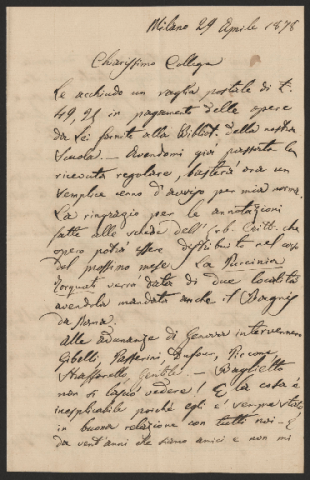 Milano 29 Aprile 1878
Chiarissimo Collega
Le acchiudo un vaglia postale di £.
49,25 in pagamento delle opere
da Lei fornite alla Bibliot. della nostra
Scuola. — Avendomi già passata la
ricevuta regolare, basterà ora un
semplice cenno d'avviso per mia norma.
La ringrazio per le annotazioni
fatte alle schede dell'Erb. Critt. che
spero potrà essere distribuito nel corso
del prossimo mese. La Puccinia
Torquati verrà data di due località
avendola mandata anche il Bagnis
da Roma.
Alle adunanze di Genova intervennero
Gibelli, Passerini, Dufour, Piccone
Strafforello, Gentile. — Baglietto
non si lasciò vedere! E la cosa è
inesplicabile poichè egli è sempre stato
in buona relazione con tutti noi — È
da vent'anni che siamo amici e non mi